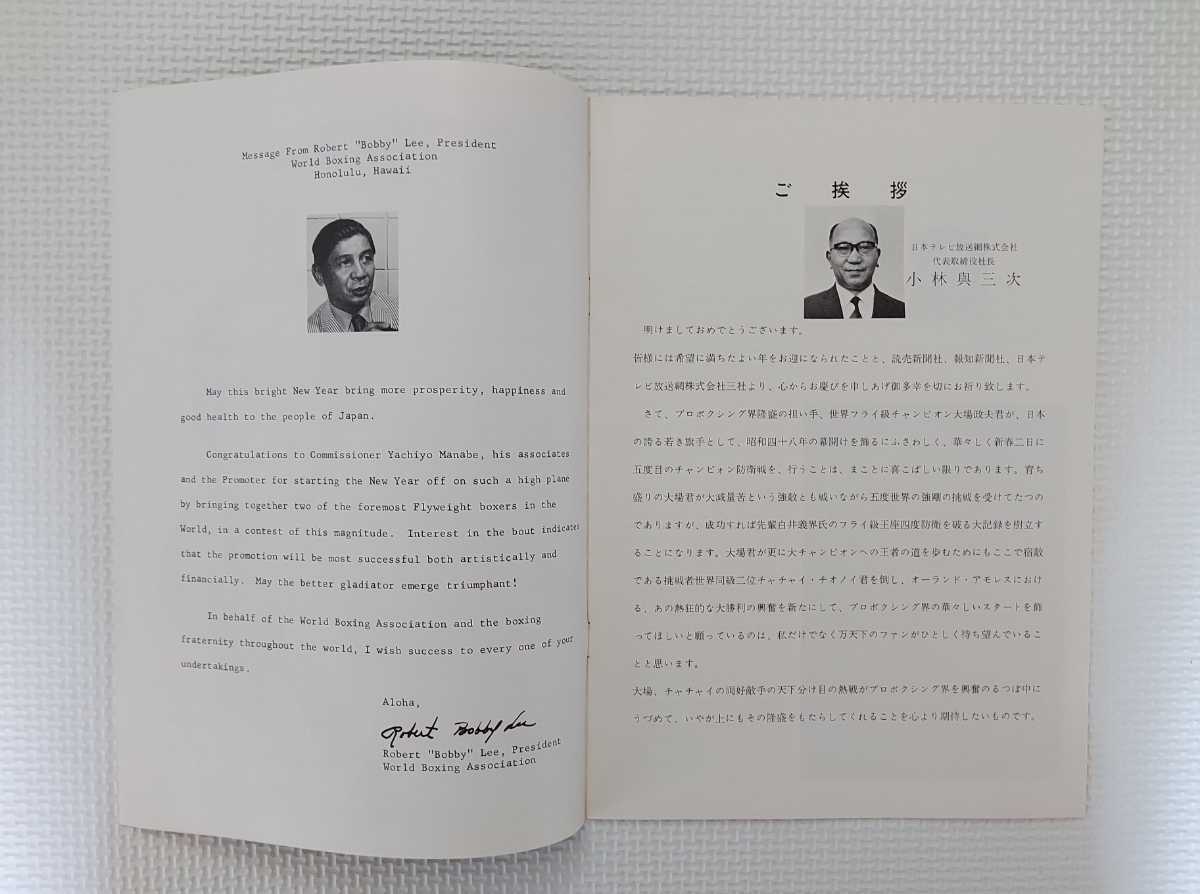 Message From Robert "Bobby" Lee, President
World Boxing Association
Honolulu, Hawaii
May this bright New Year bring more prosperity, happiness and
good health to the people of Japan.
Congratulations to Commissioner Yachiyo Manabe, his associates
and the Promoter for starting the New Year off on such a high plane
by bringing together two of the foremost Flyweight boxers in the
World, in a contest of this magnitude. Interest in the bout indicates
that the promotion will be most successful both artistically and
financially. May the better gladiator emerge triumphant!
In behalf of the World Boxing Association and the boxing
fraternity throughout the world, I wish success to every one of your
undertakings.
Aloha,
Robert Bobby Lee
Robert "Bobby" Lee, President
World Boxing Association
ご挨拶
日本テレビ放送網株式会社
代表取締役社長
小林與三次
明けましておめでとうございます。
皆様には希望に満ちたよい年をお迎になられたことと、読売新聞社、報知新聞社、日本テ
レビ放送網株式会社三社より、心からお慶びを申しあげ御多幸を切にお祈り致します。
さて、プロボクシング界隆盛の担い手、世界フライ級チャンピオン大場政夫君が、日本
の誇る若き旗手として、昭和四十八年の幕開けを飾るにふさわしく、華々しく新春二日に
五度目のチャンピオン防衛戦を、行うことは、まことに喜こばしい限りであります。育ち
盛りの大場君が大減量苦という強敵とも戦いながら五度世界の強剛の挑戦を受けてたつの
でありますが、成功すれば先輩白井義男氏のフライ級王座四度防衛を破る大記録を樹立す
ることになります。大場君が更に大チャンピオンへの王者の道を歩むためにもここで宿敵
である挑戦者世界同級二位チャチャイ・チオノイ君を倒し、オーランド・アモレスにおけ
る、あの熱狂的な大勝利の興奮を新たにして、プロボクシング界の華々しいスタートを飾
ってほしいと願っているのは、私だけでなく万天下のファンがひとしく待ち望んでいるこ
とと思います。
大場、チャチャイの両好敵手の天下分け目の熱戦がプロボクシング界を興奮のるつぼ中に
うづめて、いやが上にもその隆盛をもたらしてくれることを心より期待したいものです。